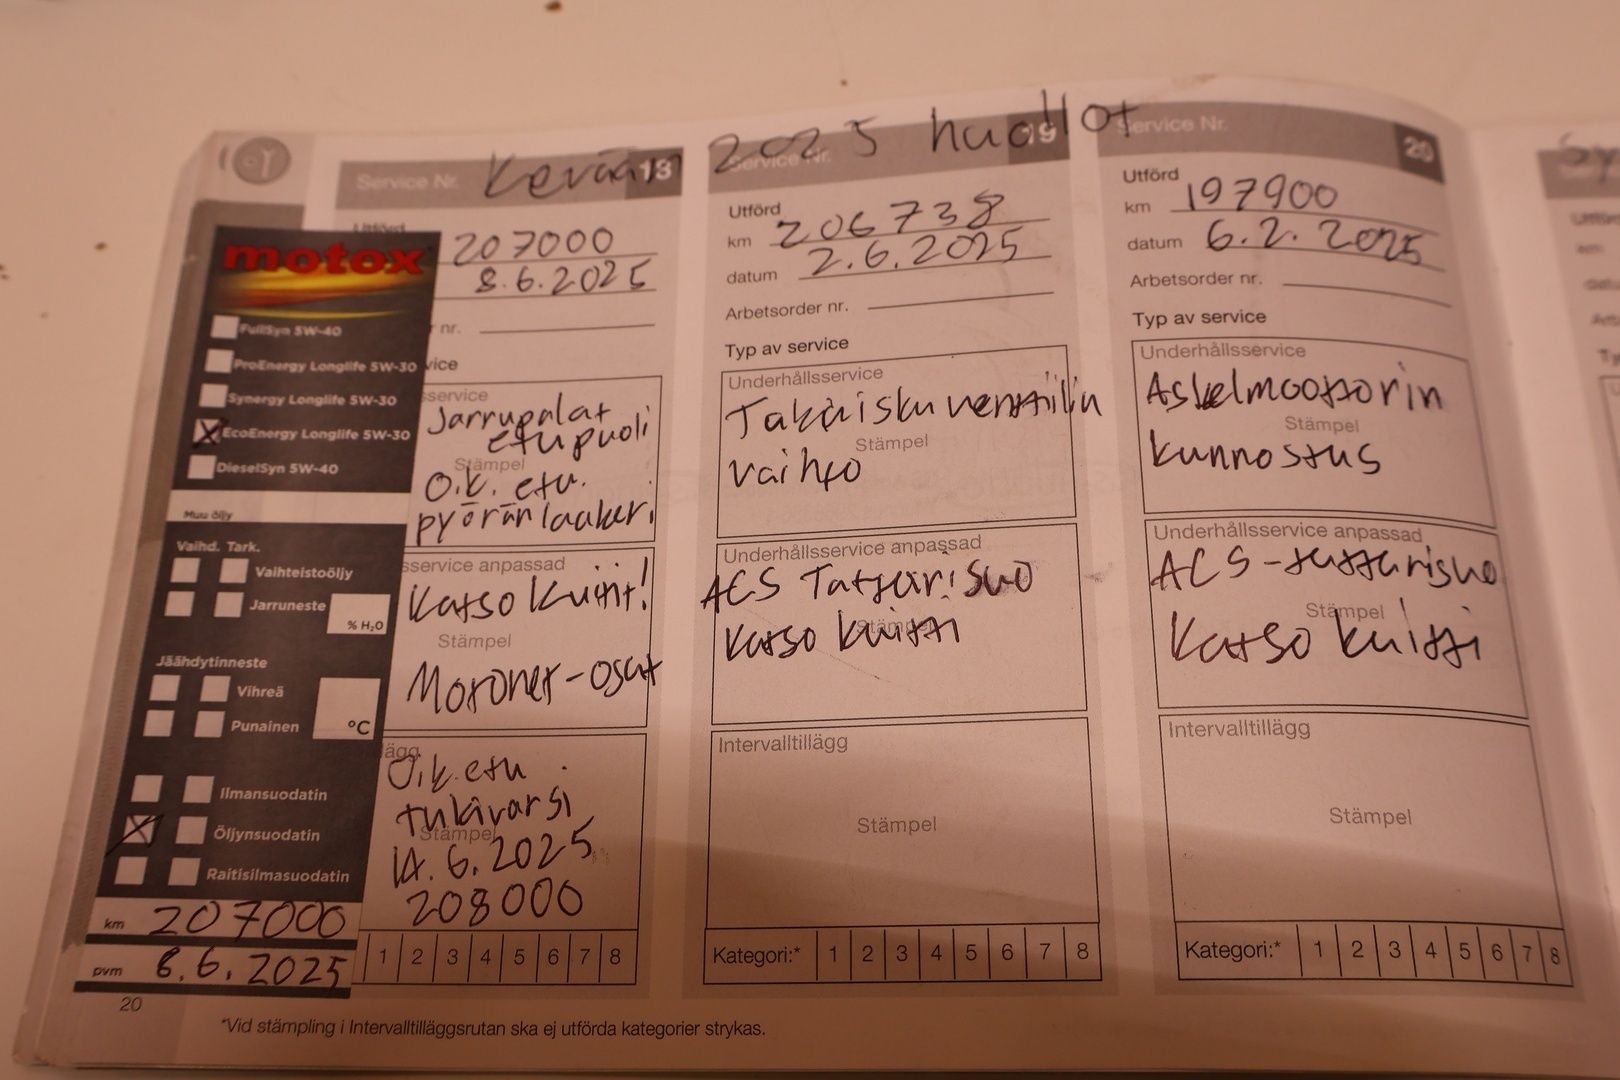 Kevään 2025 huollot
motox
FullSyn 5W-40
ProEnergy Longlife 5W-30
Synergy Longlife 5W-30
EcoEnergy Longlife 5W-30
DieselSyn 5W-40
Muu öljy
Vaihd. Tark.
Vaihteistoöljy
Jarruneste
% H₂O
Jäähdytinneste
Vihreä
Punainen
°C
Ilmansuodatin
Öljynsuodatin
Raitisilmasuodatin
km 207000
pvm 8.6.2025
20
Service Nr. 18
Utförd
207000
8.6.2025
nr.
vice
sservice
Jarrupalat
etupuoli
Stämpel
Oik. etu.
pyöränlaakeri
sservice anpassad
Katso kuitit!
Stämpel
Motonet-osat
lägg
Oik. etu
tukivarsi
Stämpel
14.6.2025
208000
1 2 3 4 5 6 7 8
Service Nr. 19
Utförd
km 206738
datum 2.6.2025
Arbetsorder nr.
Typ av service
Underhållsservice
Takaiskuventtiilin
Stämpel
vaihto
Underhållsservice anpassad
ACS Tattarisuo
Stämpel
Katso kuitti
Intervalltillägg
Stämpel
Kategori:* 1 2 3 4 5 6 7 8
Service Nr. 20
Utförd
km 197900
datum 6.2.2025
Arbetsorder nr.
Typ av service
Underhållsservice
Askelmoottorin
Stämpel
kunnostus
Underhållsservice anpassad
ACS-tattarisuo
Stämpel
Katso kuitti
Intervalltillägg
Stämpel
Kategori:* 1 2 3 4 5 6 7 8
*Vid stämpling i Intervalltilläggsrutan ska ej utförda kategorier strykas.